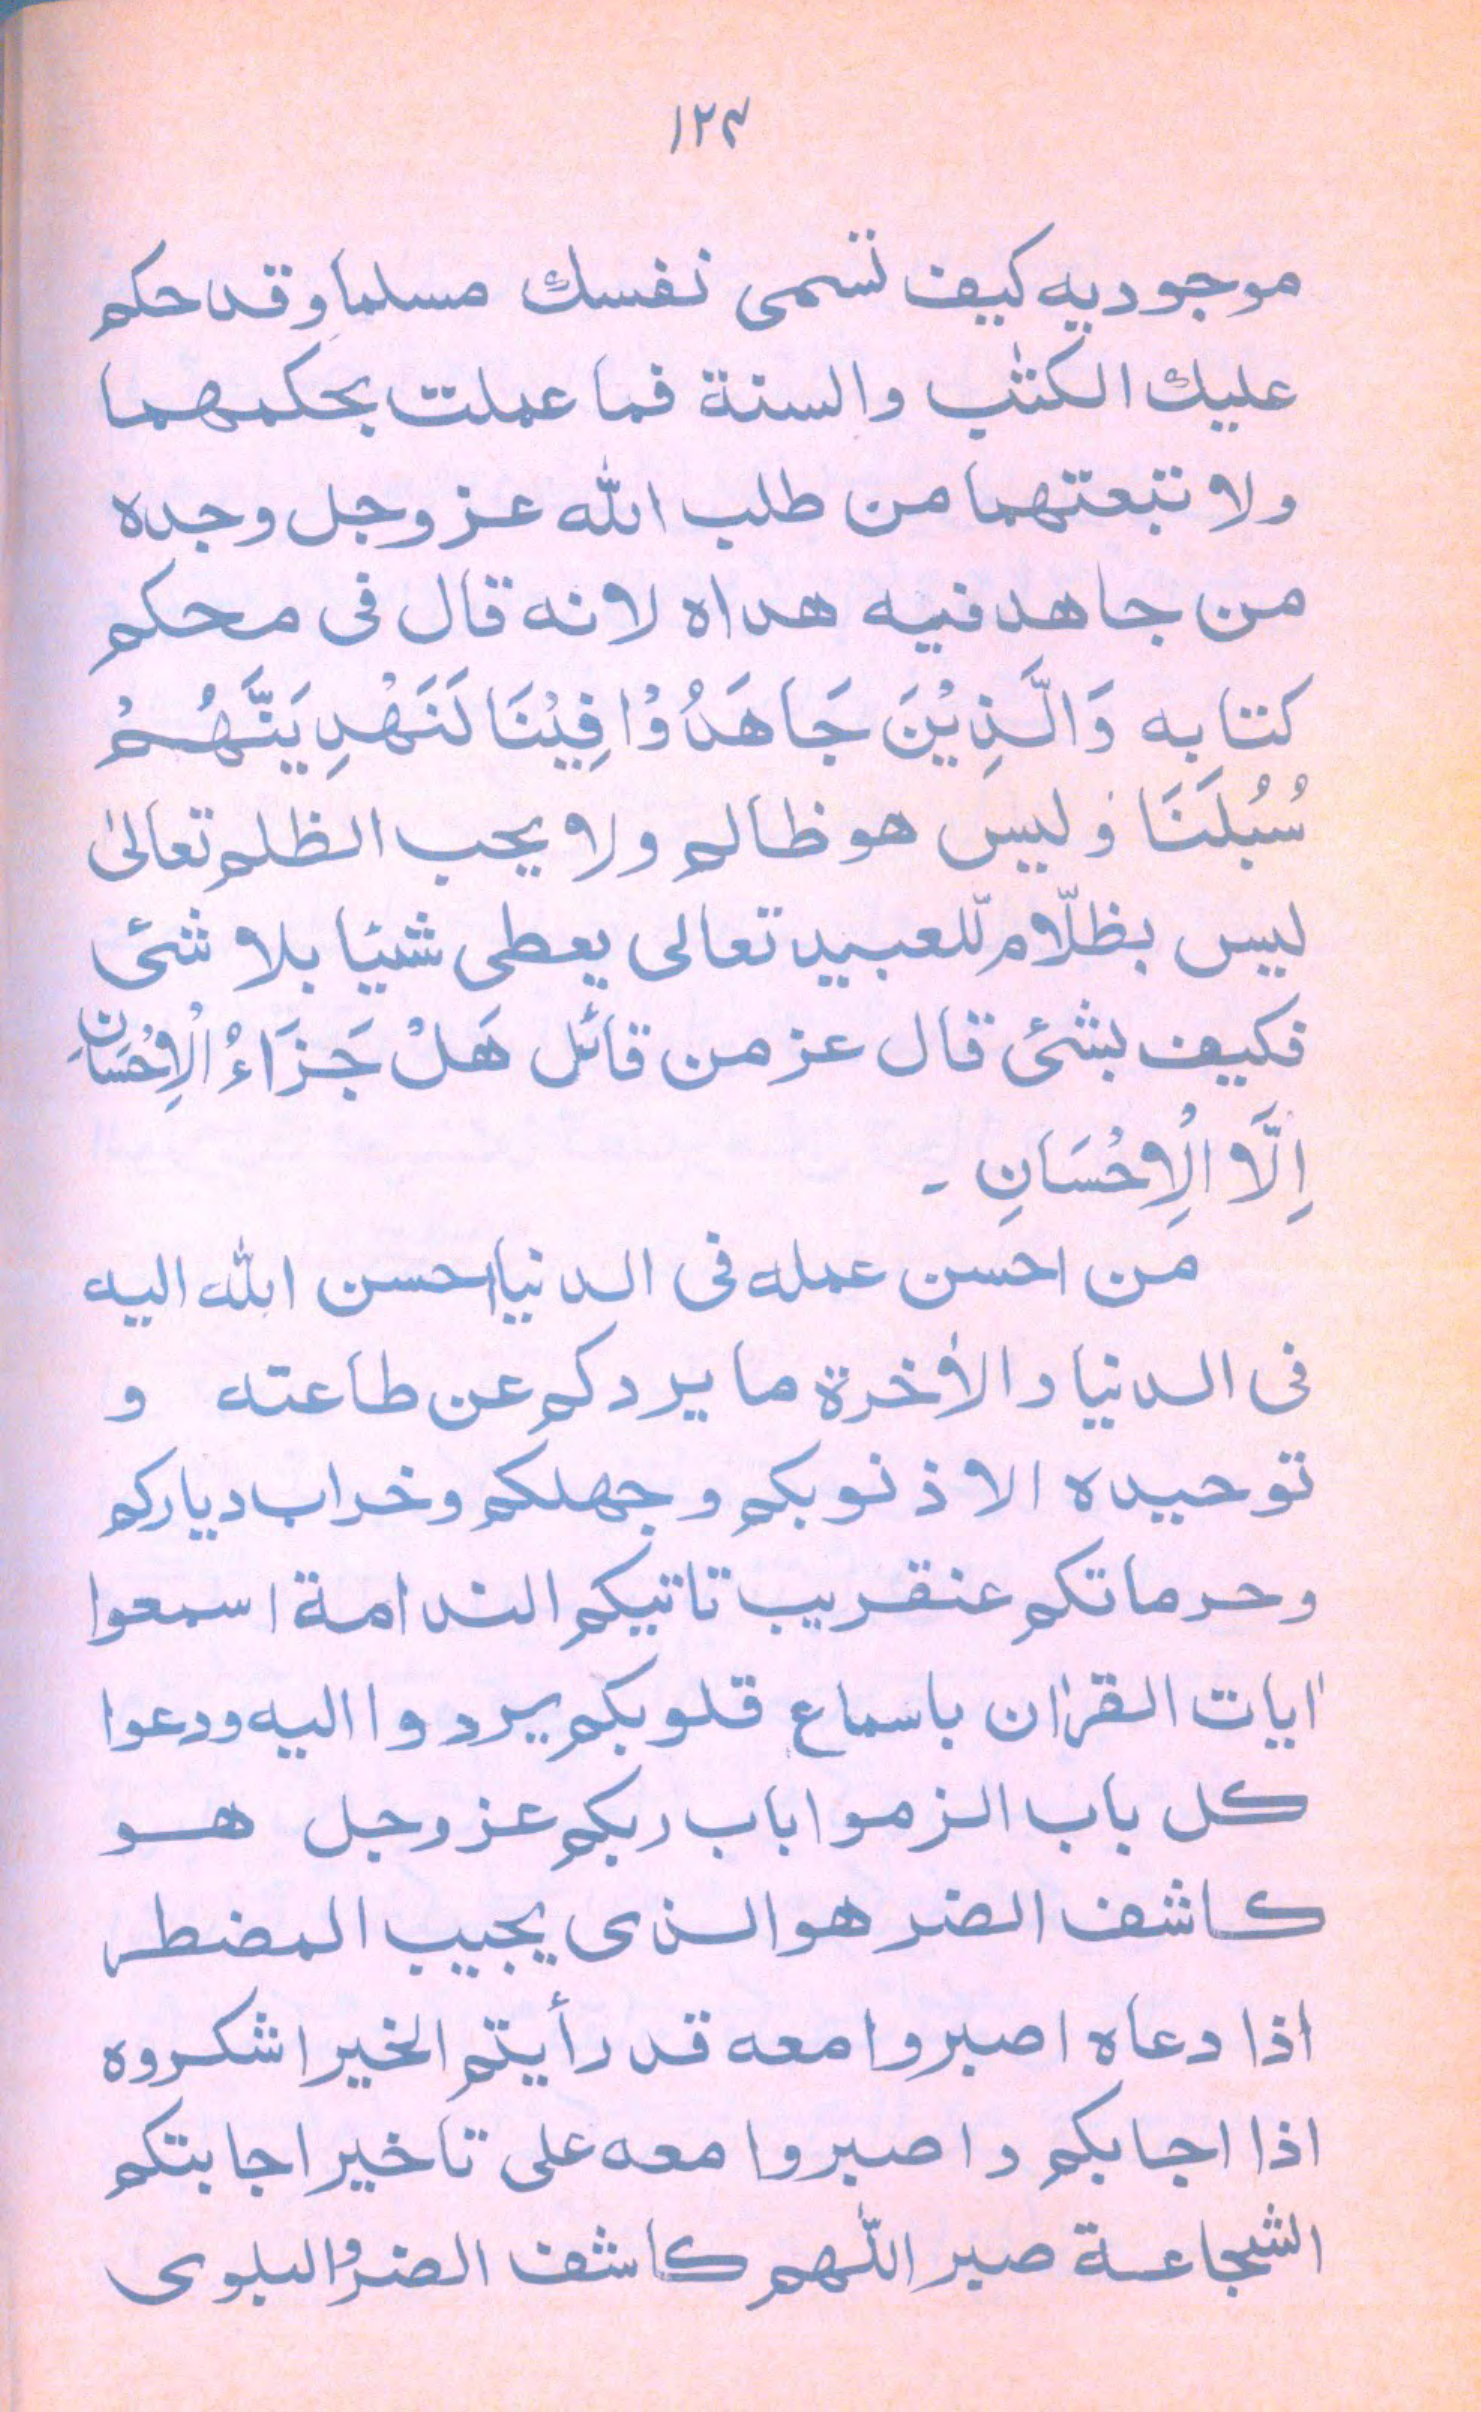 ١٢٣
موجوديه كيف تسمى نفسك مسلما وقد حكم
عليك الكتٰب والسنة فما عملت بحكمهما
ولا تبعتهما من طلب الله عز وجل وجده
من جاهد فيه هداه لانه قال فى محكم
كتابه وَالَّذِيْنَ جَاهَدُوْا فِيْنَا لَنَهْدِيَنَّهُمْ
سُبُلَنَا وليس هو ظالم ولا يحب الظلم تعالىٰ
ليس بظلّام للعبيد تعالى يعطى شيئا بلا شئ
فكيف بشئ قال عز من قائل هَلْ جَزَاءُ الْاِحْسَانِ
اِلَّا الْاِحْسَانِ -
من احسن عمله فى الدنيا احسن الله اليه
فى الدنيا والاٰخرة ما يردكم عن طاعته و
توحيده الا ذنوبكم وجهلكم وخراب دياركم
وحرماتكم عنقريب تاتيكم الندامة اسمعوا
اٰيات القراٰن باسماع قلوبكم يردوا اليه ودعوا
كل باب الزموا باب ربكم عز وجل هو
كاشف الضر هو الذى يجيب المضطر
اذا دعاه اصبروا معه قد رأيتم الخير اشكروه
اذا اجابكم واصبروا معه على تاخير اجابتكم
الشجاعة صبر اللّهم كاشف الضر والبلوى